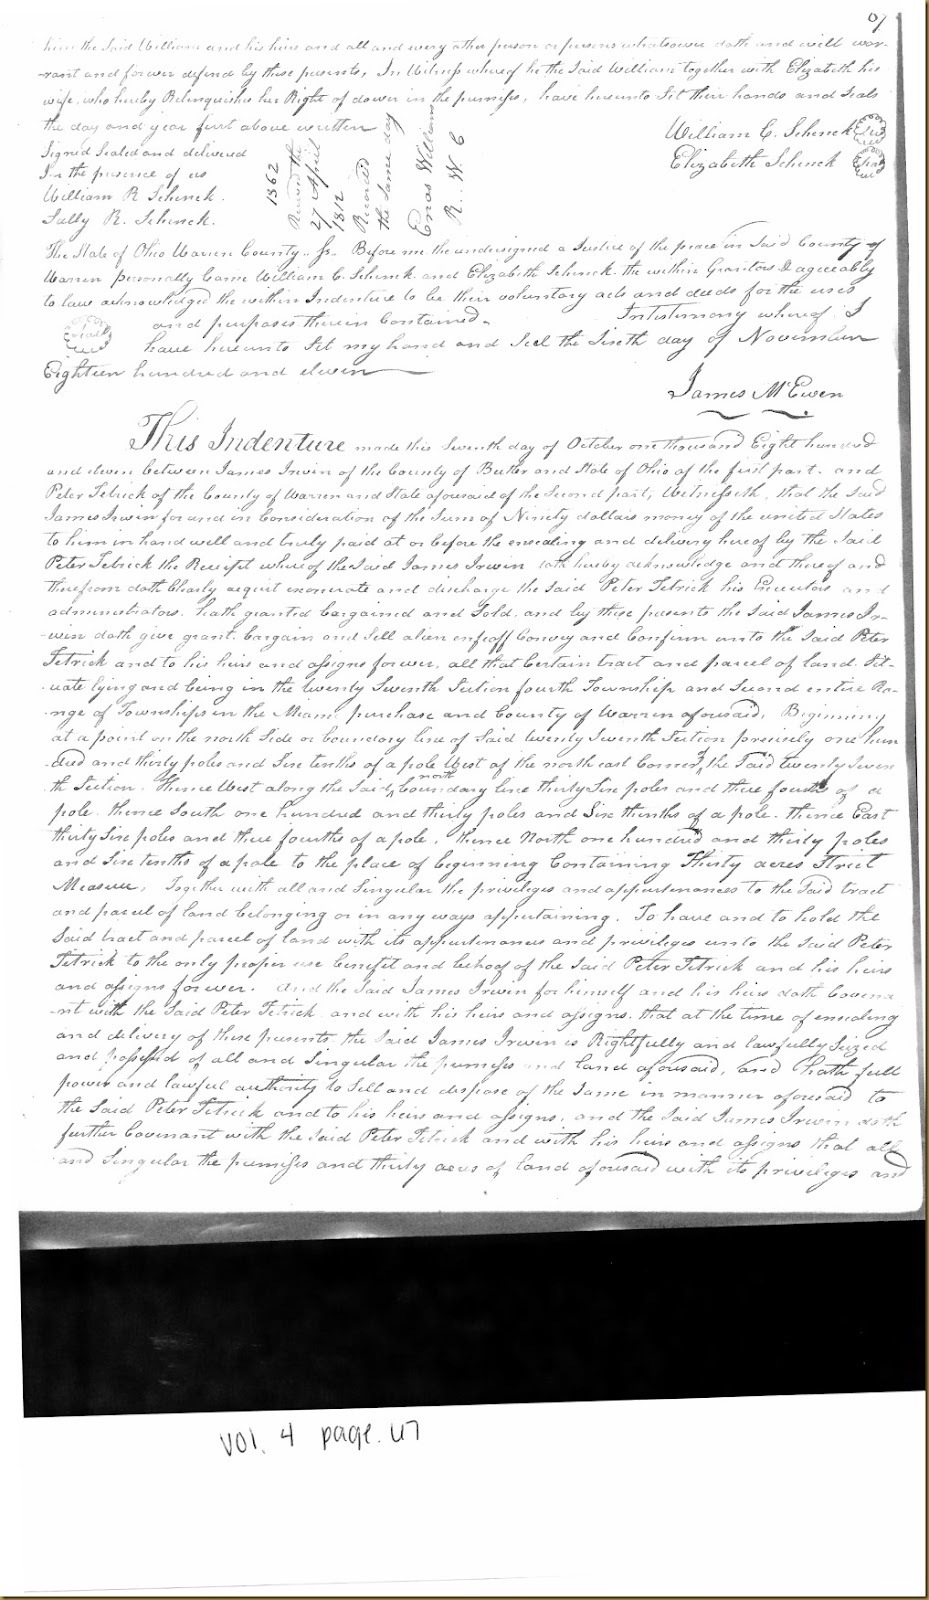 him the Said William and his heirs and all and every other person or persons whatsoever doth and will war-
-rant and forever defend by these presents, In Witness whereof he the Said William together with Elizabeth his
wife, who hereby Relinquishes her Right of dower in the premises, have hereunto Set their hands and Seals
the day and year first above written
William C. Schenck Seal
Elizabeth Schenck Seal
Signed Sealed and delivered
In the presence of us
William R Schenck.
Sally R. Schenck.
1362
Received the
27 April
1812
Recorded
the same day
Enos Williams
R. W. C
The State of Ohio Warren County Ss. Before me the undersigned a Justice of the peace in Said County of
Warren personally Came William C. Schenck and Elizabeth Schenck the within Grantors & agreeably
to law acknowledged the within Indenture to be their voluntary acts and deeds for the uses
and purposes therein Contained. In Testimony whereof I
Seal
have hereunto Set my hand and Seal the Sixth day of November
Eighteen hundred and eleven
James McEwen
This Indenture made this Seventh day of October one thousand Eight hundred
and eleven between James Irwin of the County of Butler and State of Ohio of the first part. and
Peter Tetrick of the County of Warren and State aforesaid of the Second part, Witnesseth, that the Said
James Irwin for and in Consideration of the Sum of Ninety dollars money of the united States
to him in hand well and truly paid at or before the ensealing and delivery hereof by the Said
Peter Tetrick the Receipt whereof the Said James Irwin doth hereby acknowledge and thereof and
therefrom doth Clearly acquit exonerate and discharge the Said Peter Tetrick his Executors and
administrators. hath granted bargained and Sold. and by these presents the Said James Ir-
-win doth give grant. bargain and Sell alien enfeoff Convey and Confirm unto the Said Peter
Tetrick and to his heirs and assigns forever, all that Certain tract and parcel of land. Sit-
-uate lying and being in the twenty Seventh Section fourth Township and Second entire Ra-
-nge of Townships in the Miami purchase and County of Warren aforesaid, Beginning
at a point on the north Side or boundary line of Said twenty Seventh Section precisely one hun
dred and thirty poles and Six tenths of a pole West of the north east Corner of the Said twenty Seven
th Section. thence West along the Said north boundary line thirty Six poles and three fourths of a
pole. thence South one hundred and thirty poles and Six tenths of a pole. thence East
thirty Six poles and three fourths of a pole, thence North one hundred and thirty poles
and Six tenths of a pole to the place of beginning Containing Thirty acres Strict
Measure, Together with all and Singular the privileges and appurtenances to the Said tract
and parcel of land belonging or in any ways appertaining. To have and to hold the
Said tract and parcel of land with its appurtenances and privileges unto the Said Peter
Tetrick to the only proper use benefit and behoof of the Said Peter Tetrick and his heirs
and assigns forever. And the Said James Irwin for himself and his heirs doth Covena
-nt with the Said Peter Tetrick and with his heirs and assigns. that at the time of ensealing
and delivery of these presents, the Said James Irwin is Rightfully and lawfully Seized
and possessed of all and Singular the premises and land aforesaid, and hath full
power and lawful authority to Sell and dispose of the Same in manner aforesaid to
the Said Peter Tetrick and to his heirs and assigns, and the Said James Irwin doth
further Covenant with the Said Peter Tetrick and with his heirs and assigns that all
and Singular the premises and thirty acres of land aforesaid with its privileges and
vol. 4 page.